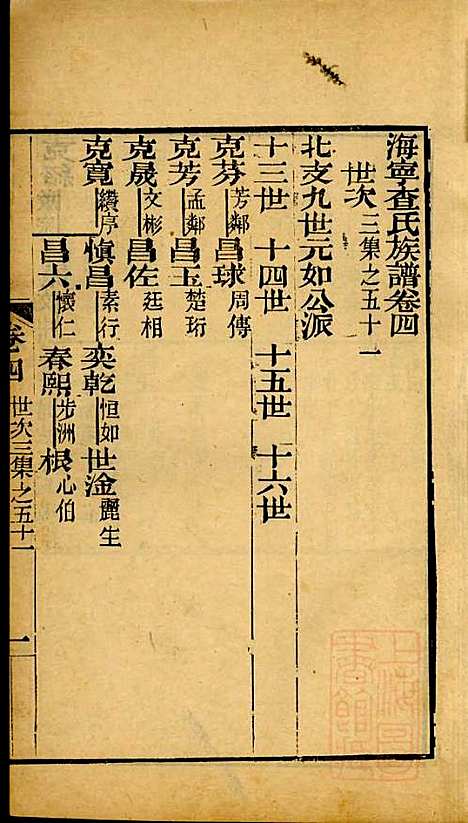 海寧查氏族譜卷四
世次三集之五十一
北支九世元如公派
十三世 十四世 十五世 十六世
克芬 芳鄰 昌球 周傳
克芳 孟鄰 昌玉 楚珩
克晟 文彬 昌佐 廷相
克寬 纘序 愼昌 素行 奕乾 恒如 世淦 麗生
昌六 懷仁 春熙 步洲 根 心伯
卷四 世次三集之五十一 一
上海圖書館藏